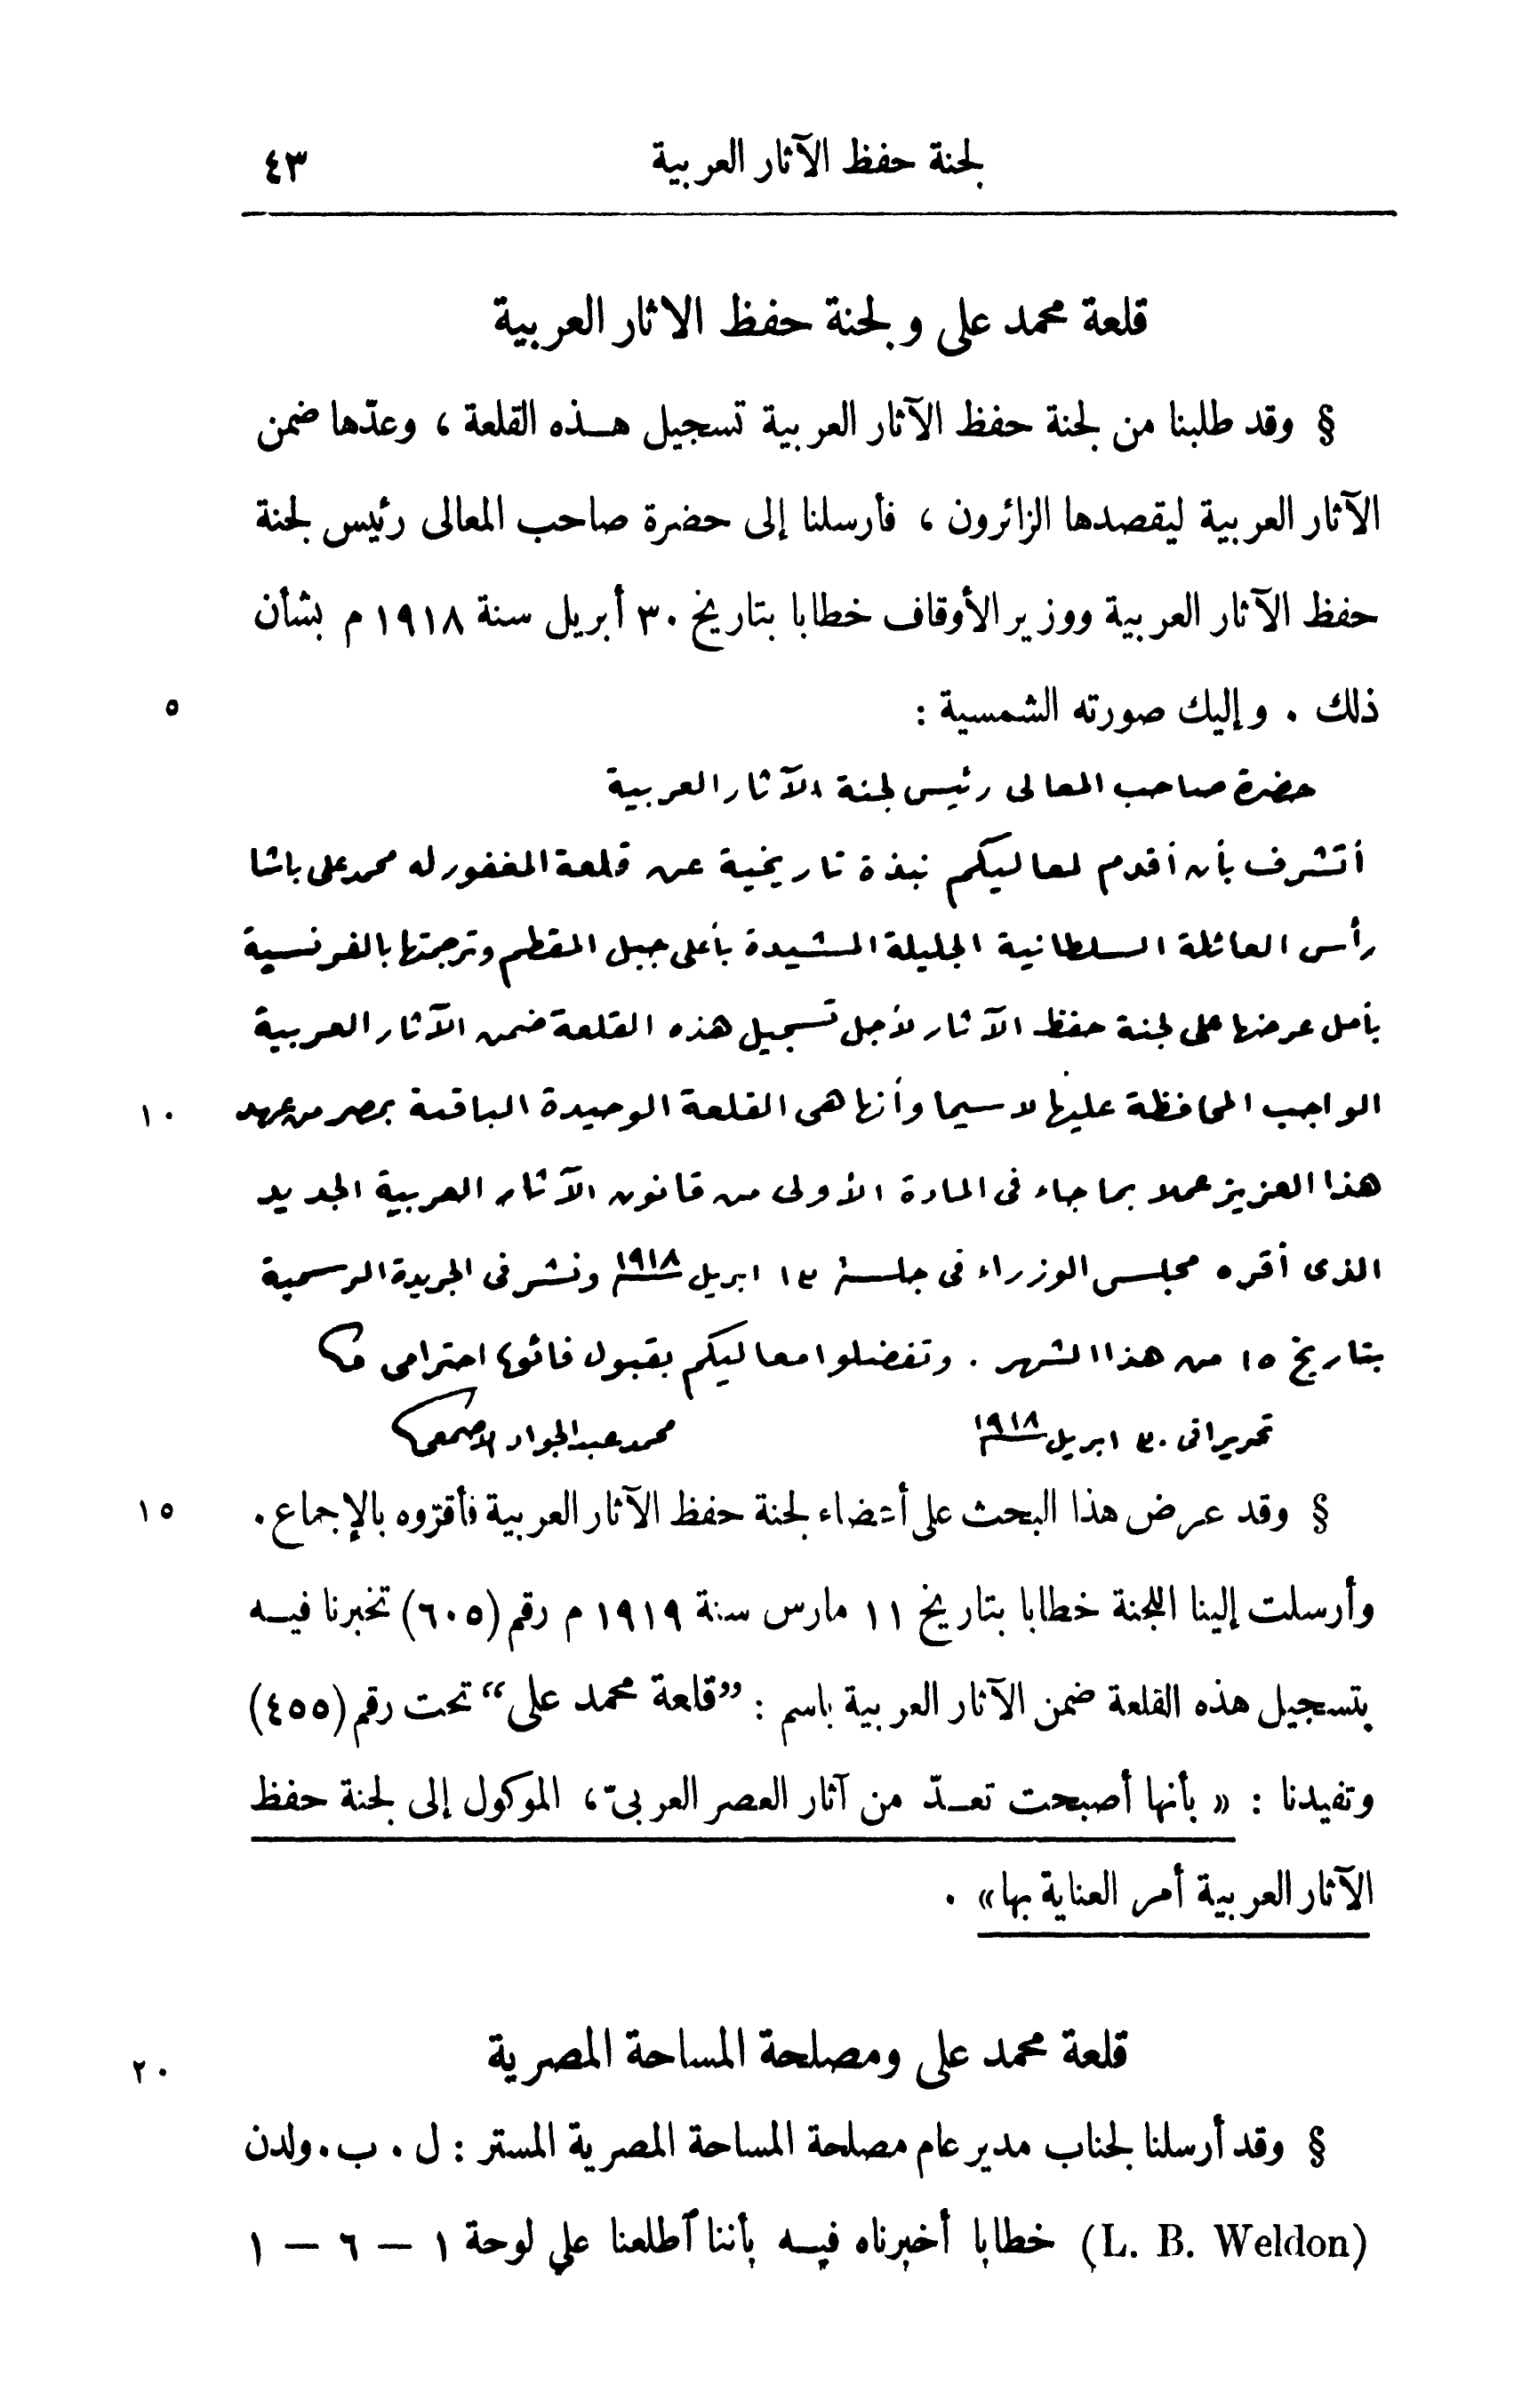 لجنة حفظ الآثار العربية ٤٣
قلعة محمد على ولجنة حفظ الاثار العربية
§ وقد طلبنا من لجنة حفظ الآثار العربية تسجيل هـذه القلعة ، وعدّها ضمن
الآثار العربية ليقصدها الزائرون ، فأرسلنا إلى حضرة صاحب المعالى رئيس لجنة
حفظ الآثار العربية ووزير الأوقاف خطابا بتاريخ ٣٠ أبريل سنة ١٩١٨ م بشأن
ذلك . وإليك صورته الشمسية : ٥
حضرة صاحب المعالى رئيس لجنة الآثار العربية
أتشرف بأن أقدم لمعاليكم نبذة تاريخية عن قلعة المغفور له محمد على باشا
رأس العائلة السلطانية الجليلة المشيدة بأعلى جبل المقطم وترجمتها بالفرنسية
بأمل عرضها على لجنة حفظ الآثار لأجل تسجيل هذه القلعة ضمن الآثار العربية
الواجب المحافظة عليها لا سيما وأنها هى القلعة الوحيدة الباقية بمصر من عهد ١٠
هذا العزيز عملا بما جاء فى المادة الأولى من قانون الآثار العربية الجديد
الذى أقره مجلس الوزراء فى جلسة ١٣ ابريل ١٩١٨ ونشر فى الجريدة الرسمية
بتاريخ ١٥ من هذا الشهر . وتفضلوا معاليكم بقبول فائق احترامى
تحريرا فى ٣٠ ابريل ١٩١٨ محمد عبد الجواد الاصمعى
§ وقد عرض هذا البحث على أعضاء لجنة حفظ الآثار العربية فأقرّوه بالإجماع . ١٥
وأرسلت إلينا اللجنة خطابا بتاريخ ١١ مارس سنة ١٩١٩ م رقم (٦٠٥) تخبرنا فيـه
بتسجيل هذه القلعة ضمن الآثار العربية باسم : ”قلعة محمد على“ تحت رقم (٤٥٥)
وتفيدنا : « بأنها أصبحت تعـدّ من آثار العصر العربىّ ، الموكول إلى لجنة حفظ
الآثار العربية أمر العناية بها» .
قلعة محمد على ومصلحة المساحة المصرية ٢٠
§ وقد أرسلنا لجناب مدير عام مصلحة المساحة المصرية المستر : ل . ب . ولدن
(L. B. Weldon) خطابا أخبرناه فيـه بأننا آطلعنا على لوحة ١ – ٦ – ١